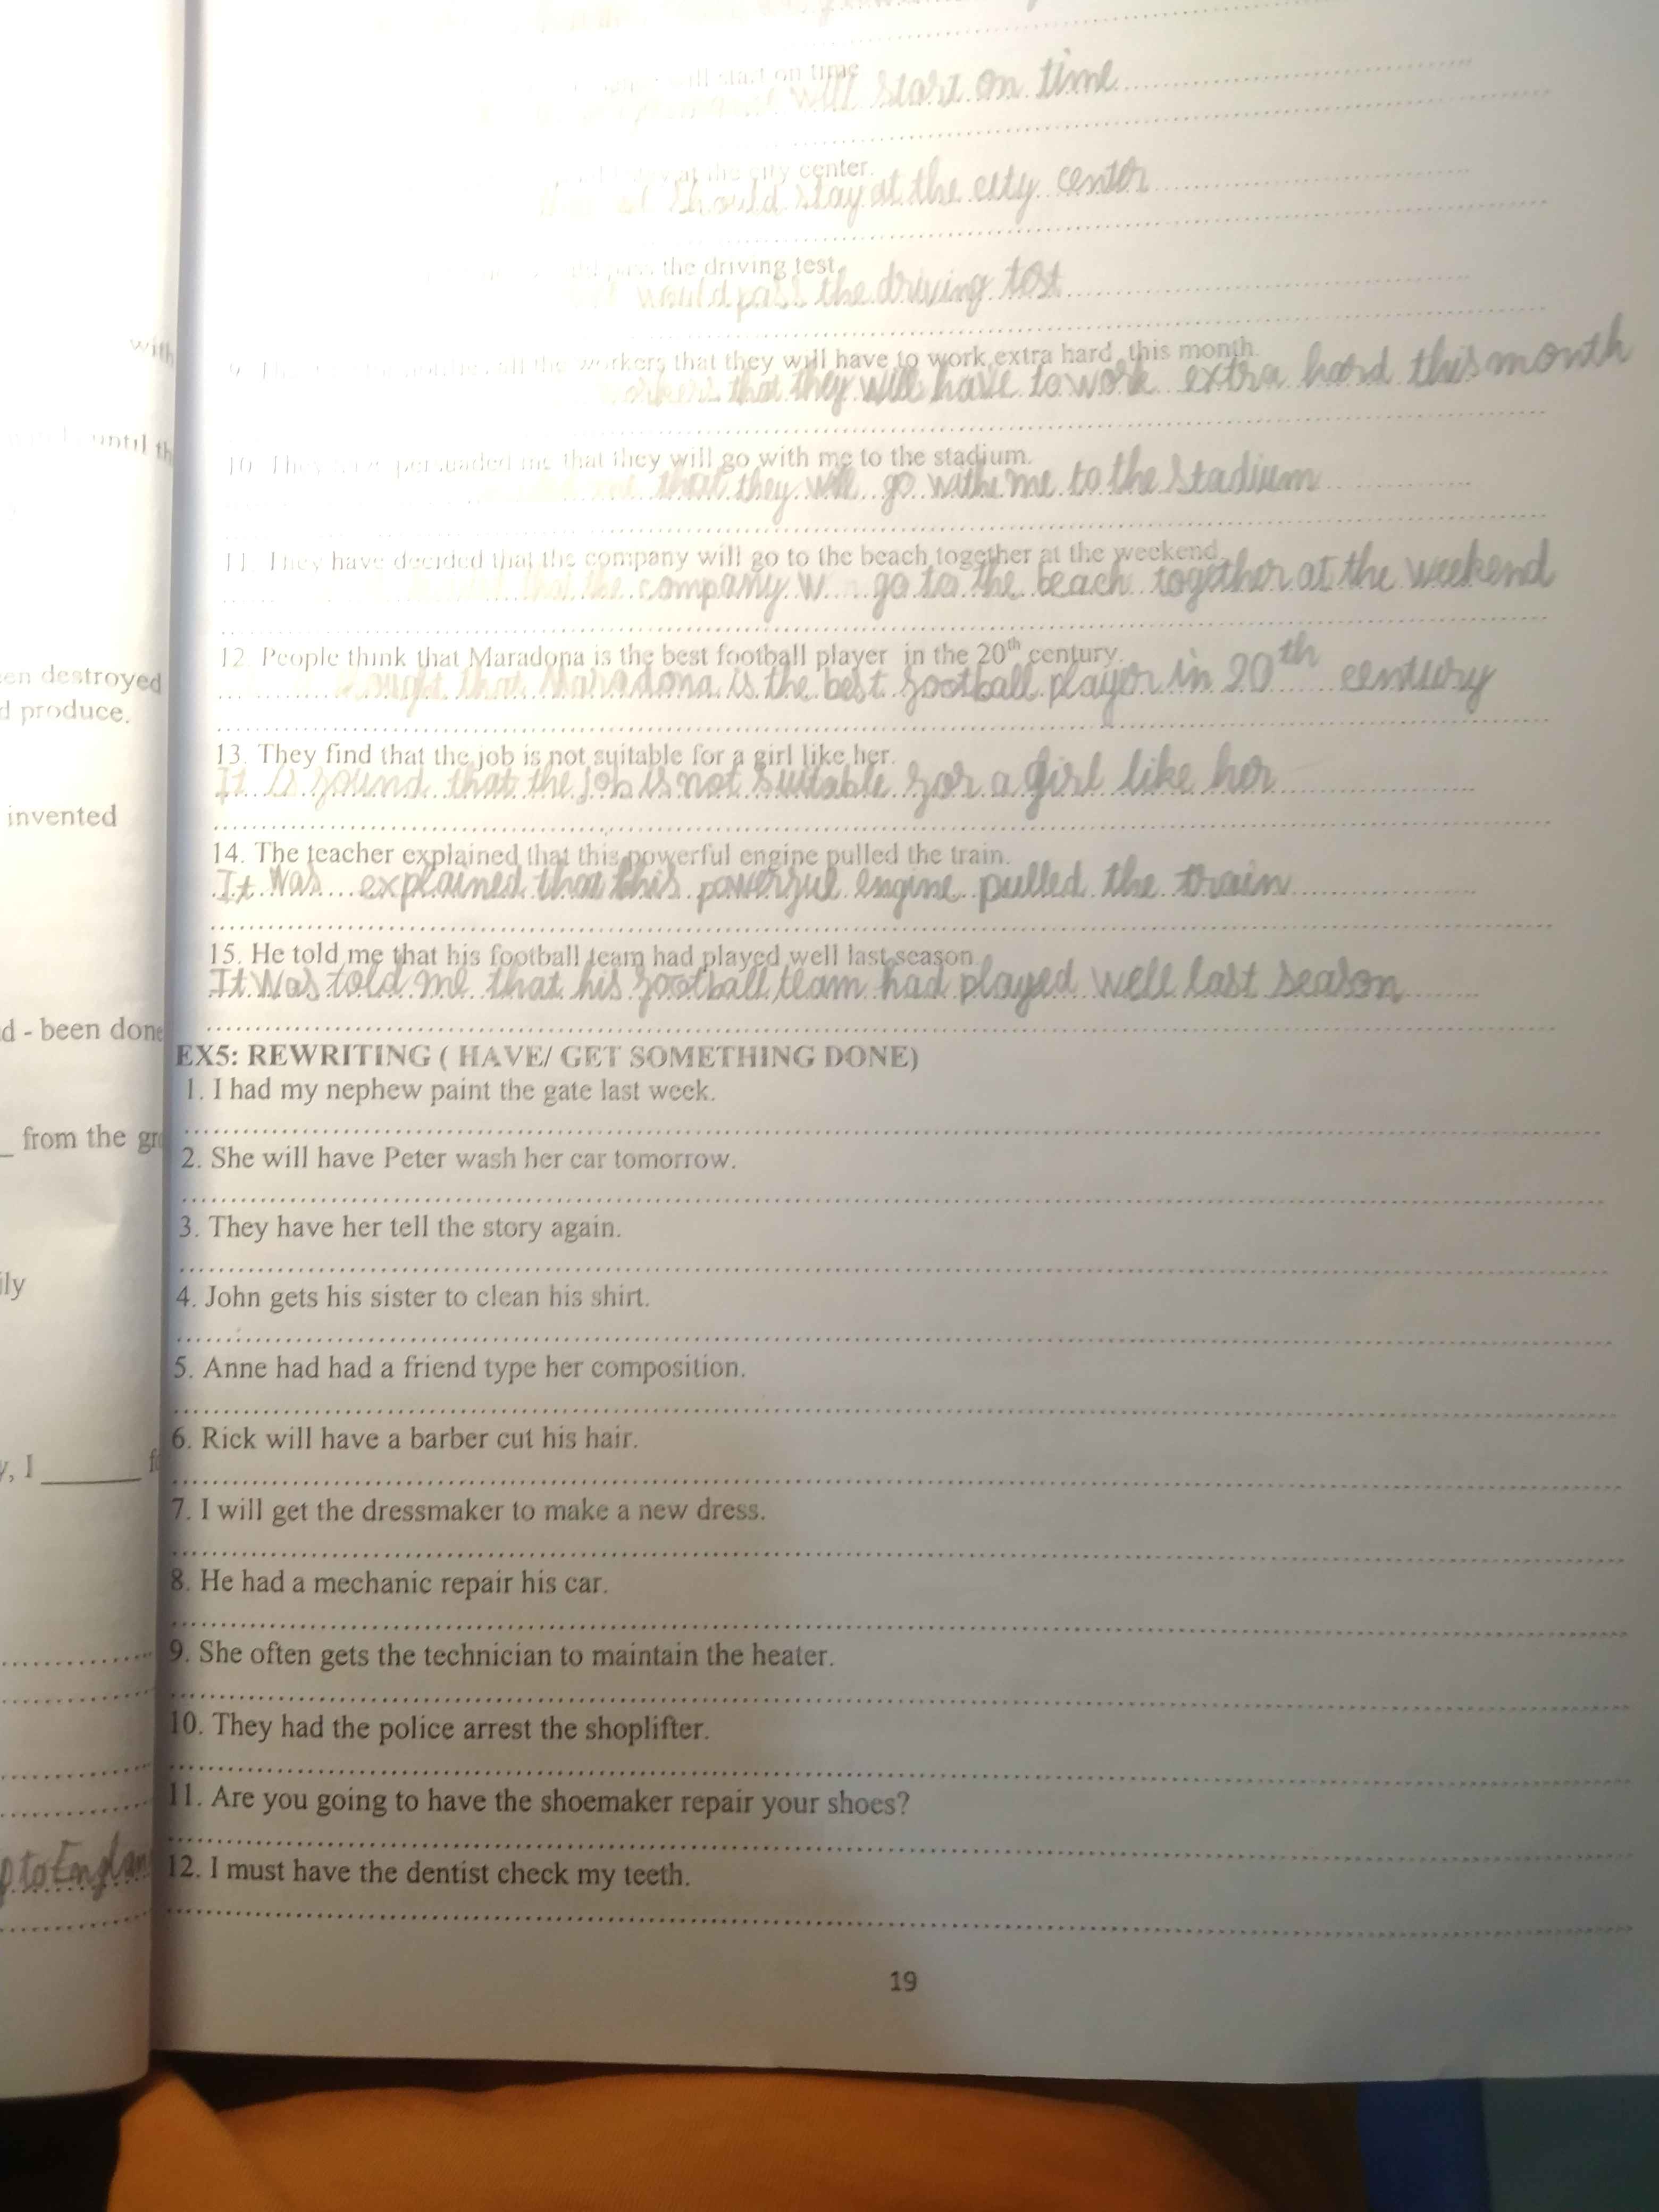 will start on time
will start on time
at the city center.
should stay at the city center
the driving test.
would pass the driving test
with
9. the workers that they will have to work extra hard this month.
workers that they will have to work extra hard this month
until th
10. They have persuaded me that they will go with me to the stadium.
me that they will go withe me to the stadium
11. They have decided that the company will go to the beach together at the weekend.
that the company go to the beach together at the weekend
12. People think that Maradona is the best football player in the 20th century.
thought that Maradona is the best football player in 20th century
en destroyed
d produce.
13. They find that the job is not suitable for a girl like her.
It is found that the job is not suitable for a girl like her
invented
14. The teacher explained that this powerful engine pulled the train.
It was explained that this powerful engine pulled the train
15. He told me that his football team had played well last season.
It was told me that his football team had played well last season
d - been done
EX5: REWRITING ( HAVE/ GET SOMETHING DONE)
1. I had my nephew paint the gate last week.
_ from the gr
2. She will have Peter wash her car tomorrow.
3. They have her tell the story again.
ily
4. John gets his sister to clean his shirt.
5. Anne had had a friend type her composition.
6. Rick will have a barber cut his hair.
y, I ______ f
7. I will get the dressmaker to make a new dress.
8. He had a mechanic repair his car.
9. She often gets the technician to maintain the heater.
10. They had the police arrest the shoplifter.
11. Are you going to have the shoemaker repair your shoes?
p to Englan
12. I must have the dentist check my teeth.
19